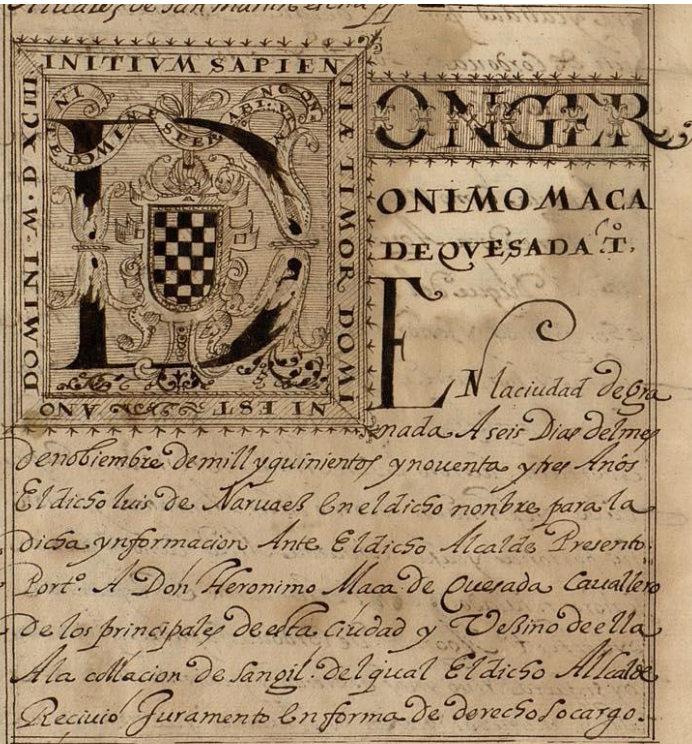 INITIVM SAPIEN
TIÆ TIMOR DOMI
NI EST ANO
DOMINI M. D XCIII
DONGER
ONIMO MACA
DE QVESADA T.º
EN laciudad degra
nada A seis Dias delmes
denobiembre demill yquinientos ynoventa ytres Años
Eldicho luis de Narvaeß Eneldicho nonbre para la
dicha ynformacion Ante Eldicho Alcalde Presento
Port.º A Don Heronimo Maca de Quesada Cavallero
De los principales deesta Ciudad y Veßino deella
Ala collacion de sangil. delqual Eldicho Allcalde
Recivio Juramento Enforma de derecho socargo.